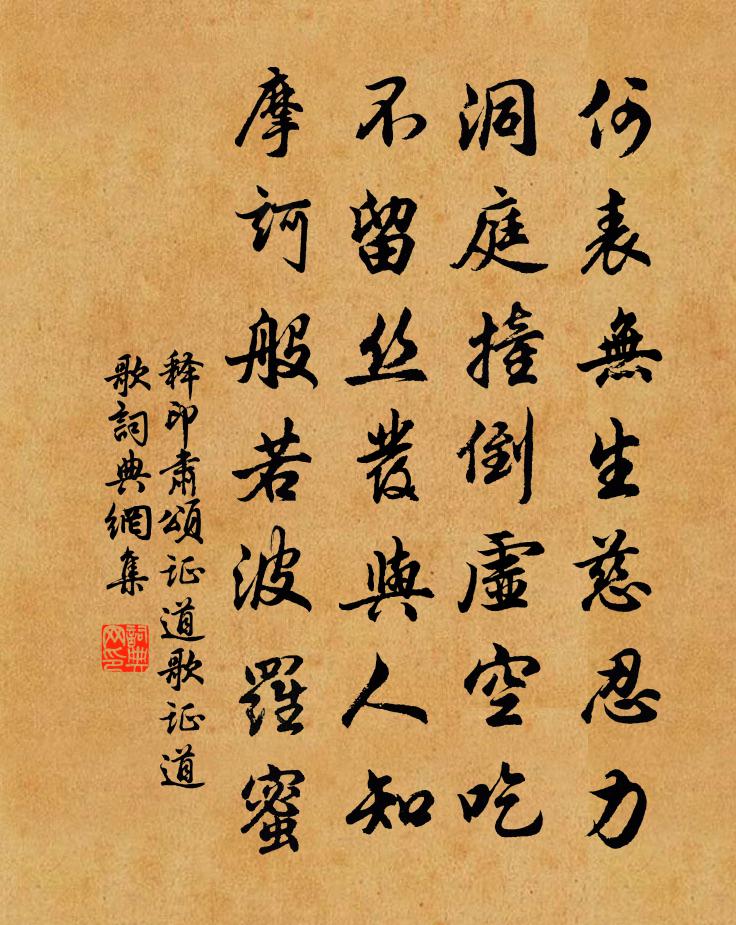 何表無生慈忍力
洞庭撞倒虛空吃
不留丝髮與人知
摩訶般若波羅蜜
释印肅頌证道歌证道
歌詞典網集
詞典网印